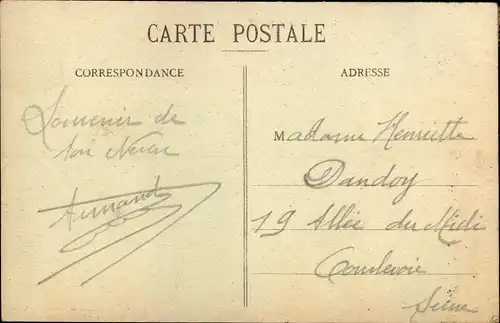 CARTE POSTALE
CORRESPONDANCE
Souvenir de
ton Neveu
Armand
ADRESSE
Madame Henriette
Dandoy
19 Allée du Midi
Courbevoie
Seine